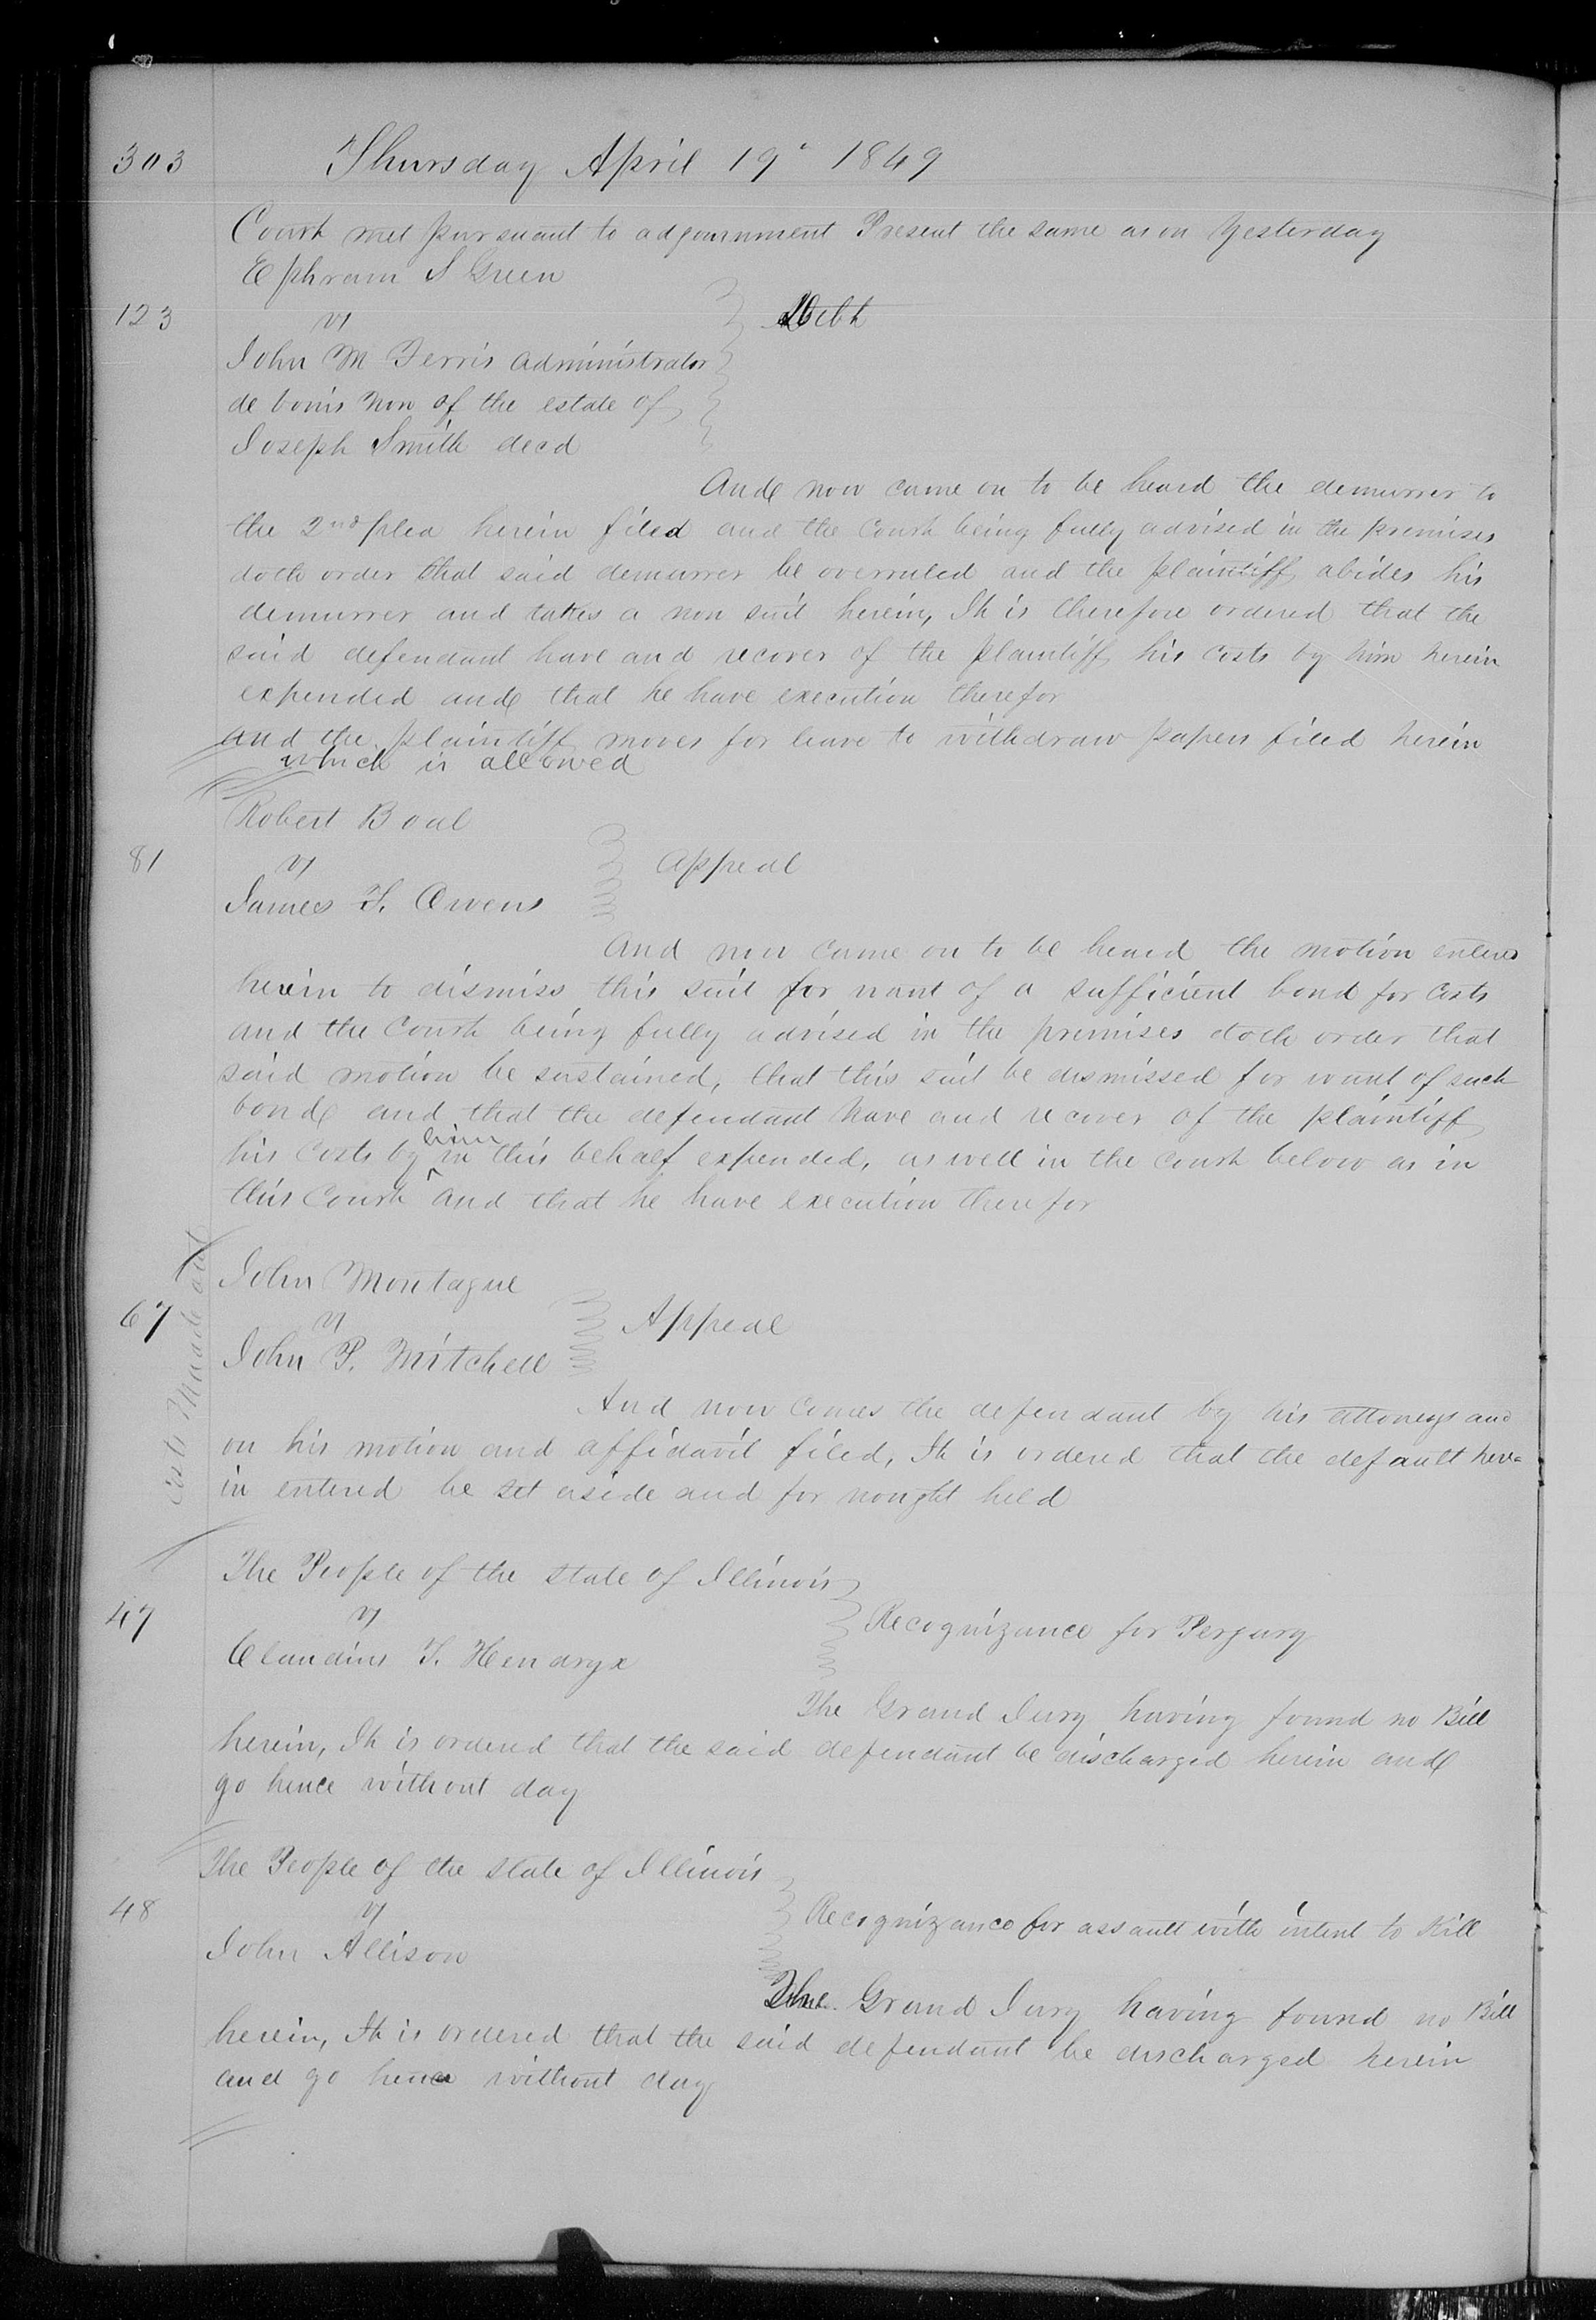 303
Thursday April 19" 1849
Court met pursuant to adjournment Present the same as on Yesterday
Ephraim S Green
123
vs
Debt
John M Ferris administrator
de bonis non of the estate of
Joseph Smith decd
And now came on to be heard the demurrer to
the 2nd plea herein filed and the Court being fully advised in the premises
doth order that said demurrer be overruled and the plaintiff abides his
demurrer and takes a non suit herein, It is therefore ordered that the
said defendant have and recover of the plaintiff his costs by him herein
expended and that he have execution therefor
and the plaintiff moves for leave to withdraw papers filed herein
which is allowed
Robert Boal
81
vs
Appeal
James F. Owens
And now came on to be heard the motion entered
herein to dismiss this suit for want of a sufficient bond for costs
and the Court being fully advised in the premises doth order that
said motion be sustained, that this suit be dismissed for want of such
bond and that the defendant have and recover of the plaintiff
his costs by him in this behalf expended, as well in the court below as in
this Court and that he have execution therefor
John Montague
67
vs
Appeal
John P. Mitchell
And now comes the defendant by his attorneys and
on his motion and affidavit filed, It is ordered that the default here=
in entered be set aside and for nought held
Costs Made out
The People of the state of Illinois
47
vs
Recognizance for Perjury
Claudius F. Hendryx
The Grand Jury having found no Bill
herein, It is ordered that the said defendant be discharged herein and
go hence without day
The People of the state of Illinois
48
vs
Recognizance for assault with intent to Kill
John Allison
The Grand Jury having found no Bill
herein, It is ordered that the said defendant be discharged herein
and go hence without day